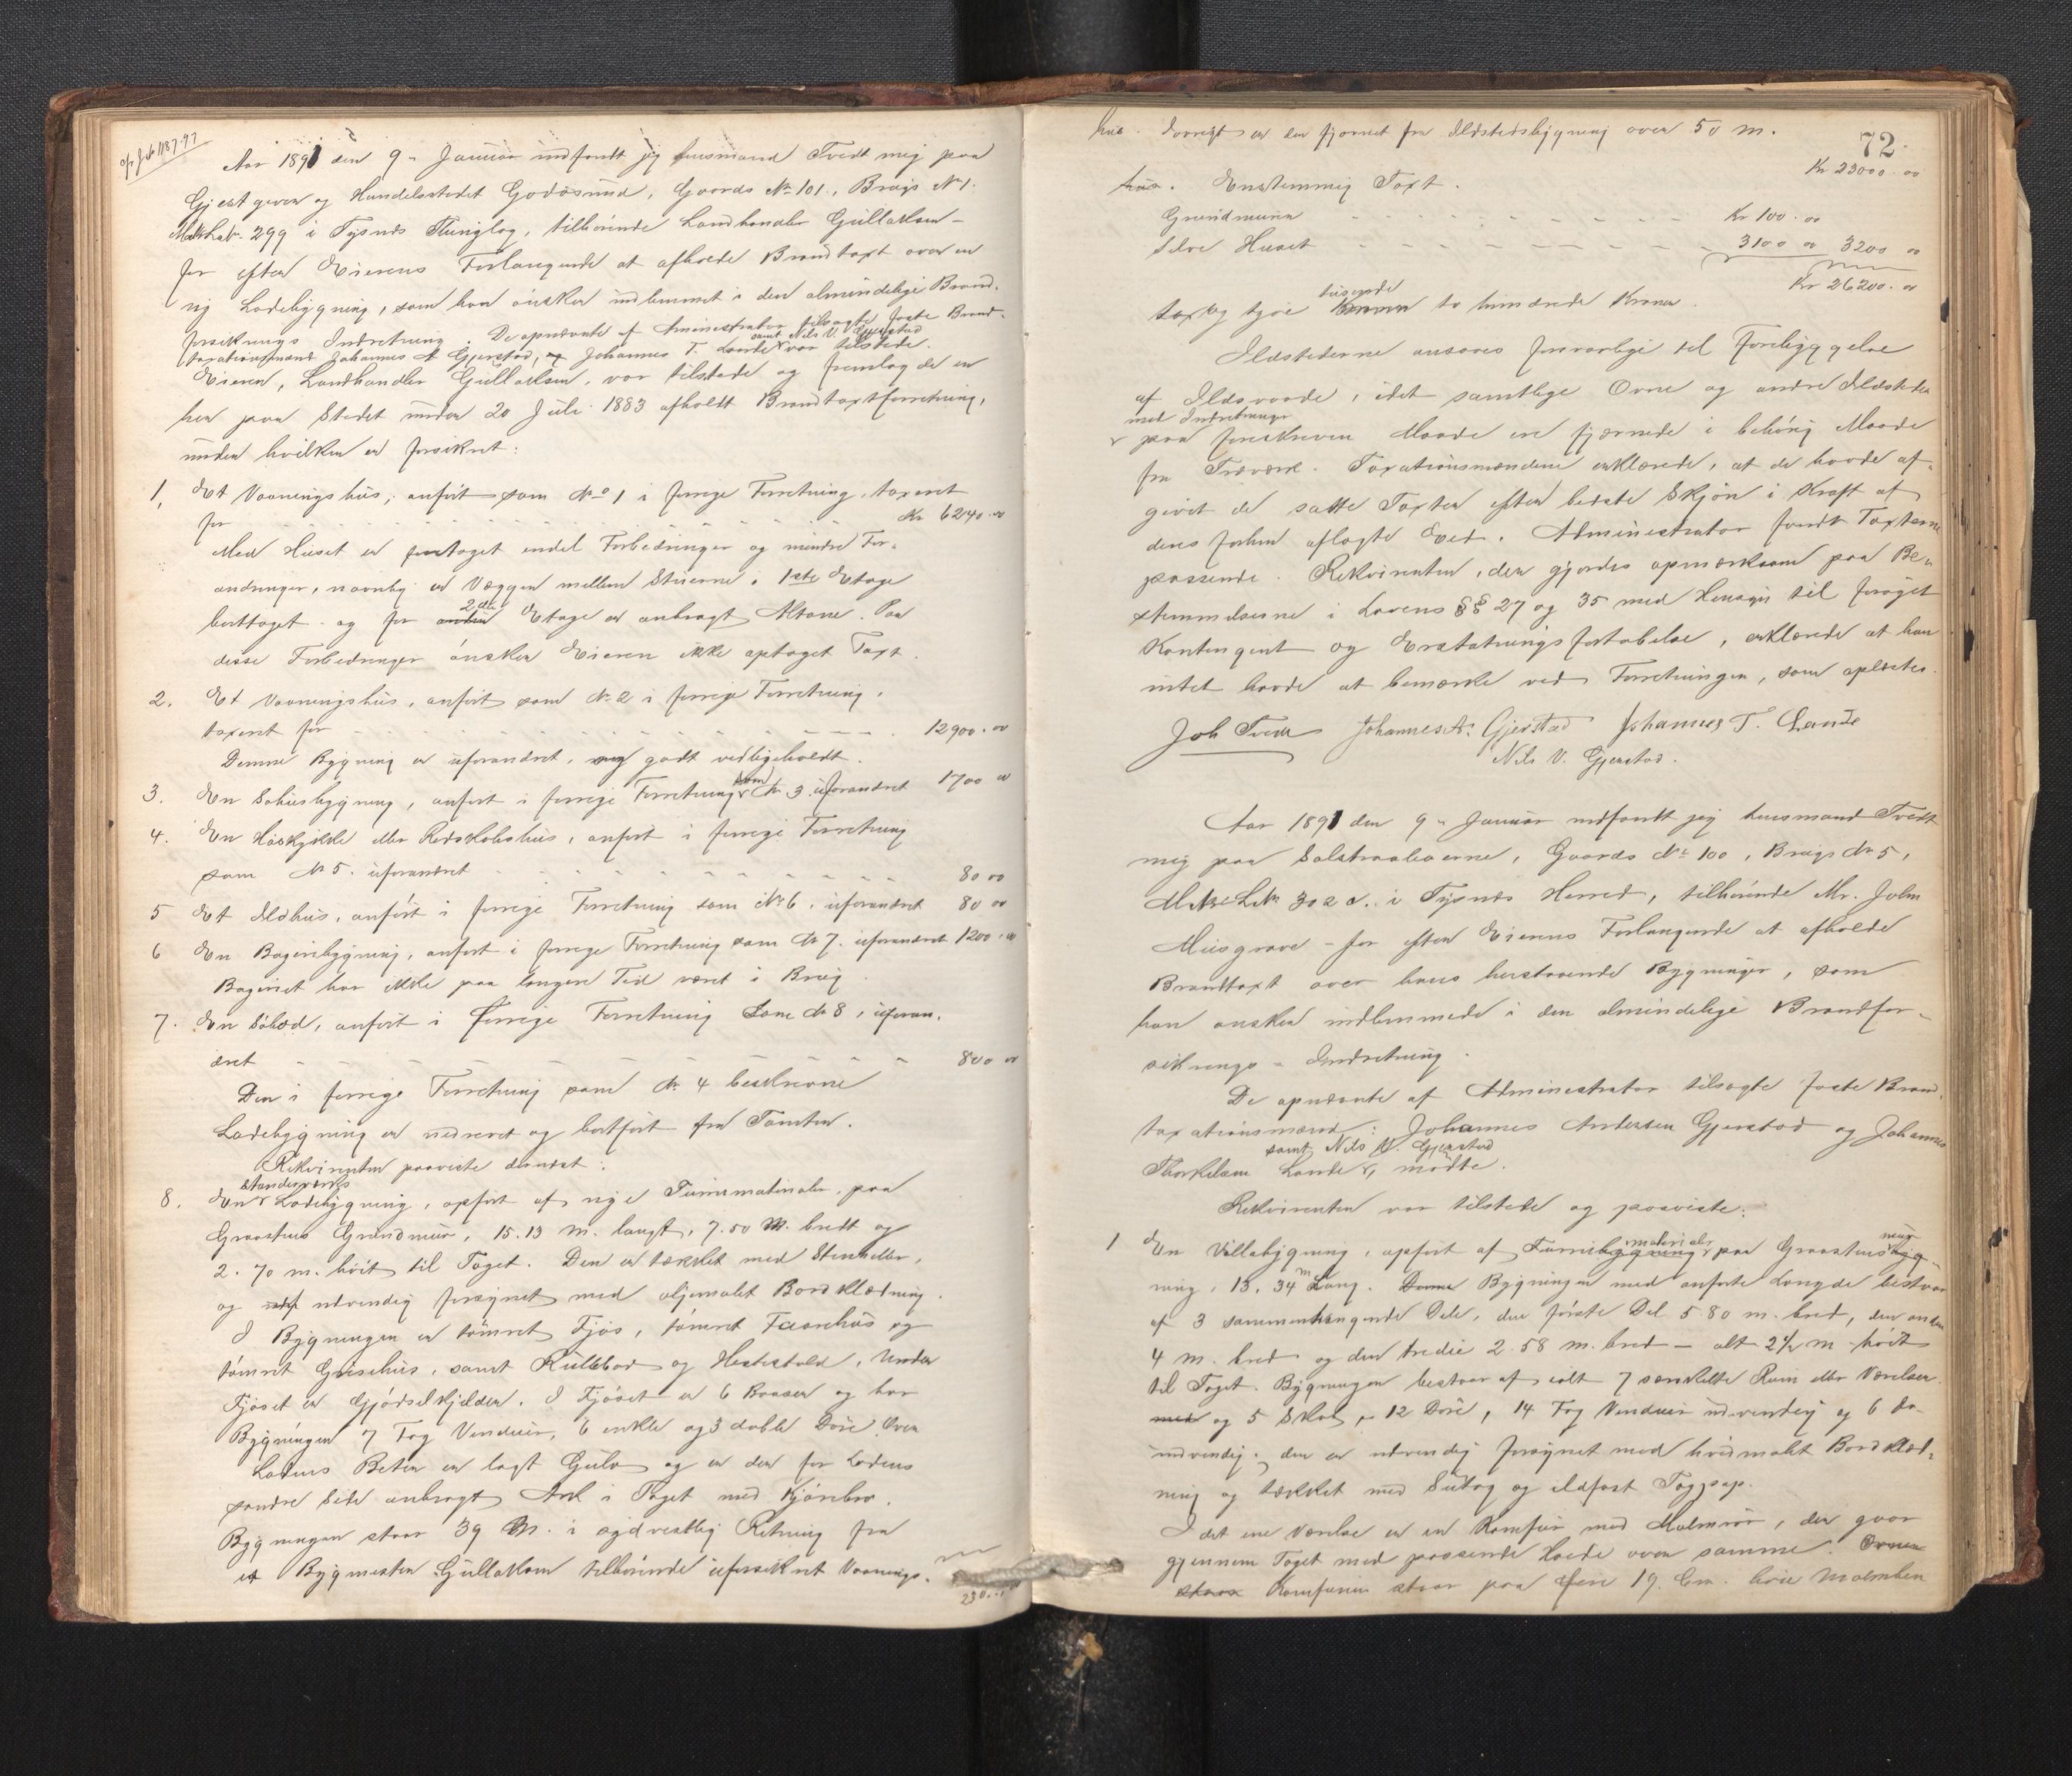 Aar 1891 den 9de Januar indfandt jeg Lensmand Tvedt mig paa
Gjestgiver og Handelsstedet Godøsund, Gaards No 101, Brugs No 1.
299 i Tysnes Thinglag, tilhørende Landhandler Gullaksen –
for efter Eierens Forlangende at afholde Brandtaxt over en
ny Ladebygning, som han ønsker indlemmet i den almindelige Brand-
forsikrings Indretning. De opnævnte af Administrator tilsagte faste Brand-
taxationsmænd Johannes A Gjerstad, Johannes T. Lande samt Nils V. Gjerstad var tilstede.
Eieren, Landhandler Gullaksen, var tilstede og fremlagde en
her paa Stedet under 20 Juli 1883 afholdt Brandtaxtforretning,
under hvilken er forsikret:
1, Et Vaaningshus, anført som No 1 i forrige Forretning, taxeret
for Kr 6240.00
Med Huset er foretaget endel Forbedringer og mindre For-
andringer, navnlig er Væggen mellem Stuerne i 1ste Etage
borttaget og for 2den Etage er anbragt Altane. Paa
disse Forbedringer ønsker Eieren ikke optaget Taxt.
2. Et Vaaningshus, anført som No 2 i forrige Forretning,
taxeret for 12900.00
Denne Bygning er uforandret, godt vedligeholdt.
3. En Søhusbygning, anført i forrige Forretning som No 3 uforandret 1700 00
4. En eller Redskabshus, anført i forrige Forretning
som No 5. uforandret 80 00
5 Et Ildhus, anført i forrige Forretning som No 6, uforandret 80 00
6 En Bageribygning, anført i forrige Forretning som No 7. uforandret 1200.00
Bageriet har ikke paa længere Tid været i Brug.
7. En Søbod, anført i forrige Forretning som No 8, uforan-
dret 800 00
Den i forrige Forretning som No 4 beskrevne
Ladebygning er nedrevet og bortført fra Tomten.
Rekvirenten paaviste dernæst:
8. En Standerværks Ladebygning, opført af nye Furumaterialer, paa
Graastens Grundmur, 15.13 M. langt, 7.50 M. bredt og
2.70 m. høit til Taget. Den er tækket med Stenheller,
og udvendig forsynet med oljemalet Bordklædning.
I Bygningen er tømret Fjøs, tømret Faarehus og
tømret Grisehus, samt og Hestestald, Under
Fjøset er Gjødselkjelder. I Fjøset er 6 Baaser og har
Bygningen 7 Fag Vinduer, 6 enkle og 3 doble Døre. Over
Ladens Beter er lagt Gulv og er der for Ladens
søndre Side anbragt Ark i Taget med Kjørebro.
Bygningen staar 39 M. i sydvestlig Retning fra
et Bygmester Gullaksen tilhørende uforsikret Vaanings-
hus. Forresten er den fjernet fra Ildstedsbygning over 50 m.
72.
Kr 23000.00
hus. Enstemmig Taxt.
Grundmuren Kr 100.00
Selve Huset 3100 00 3200 00
Kr 26200.00
sex og tyve tusende to hundrede Kroner.
Ildstederne ansaaes forsvarlige til Forebyggelse
af Ildsvaade, idet samtlige Ovne og andre Ildsteder
med Indretninger
paa foreskreven Maade ere fjernede i behørig Maade
fra Træværk. Taxationsmændene erklærede, at de havde af-
givet de satte Taxter efter bedste Skjøn i Kraft af
deres forhen aflagte Eed. Administrator fandt Taxterne
passende. Rekvirenten, der gjordes opmærksom paa Be-
stemmelserne i Lovens §§ 27 og 35 med Hensyn til forøget
Kontingent og Erstatnings fortabelse, erklærede at han
intet havde at bemærke ved Forretningen, som oplæstes.
Joh Tvedt Johannes A. Gjerstad Johannes T. Lande
Nils V. Gjerstad.
Aar 1891 den 9de Januar indfandt jeg Lensmand Tvedt
mig paa Solstraaleøerne, Gaards No 100, Brugs No 5,
302 i Tysnes Herred, tilhørende Mr. John
Musgrave – for efter Eierens Forlangende at afholde
Brandtaxt over hans herstaaende Bygninger, som
han ønsker indlemmede i den almindelige Brandfor-
sikrings-Indretning.
De opnævnte af Administrator tilsagte faste Brand-
taxationsmænd: Johannes Andersen Gjerstad og Johannes
Thorkelsen Lande samt Nils V. Gjerstad, mødte.
Rekvirenten var tilstede og paaviste:
1 En Villabygning, opført af Furumaterialer paa Graastens
, 13.34 m Lang. Bygningen med anførte Længde bestaar
af 3 sammenhængende Dele, den første Del 5.80 m. bred, den anden
4 m. bred og den tredie 2.58 m. bred – alt 2½ m høit
til Taget. Bygningen bestaar af ialt 7 særskilte Rum eller Værelser
og 5 Skab, 12 Døre, 14 Fag Vinduer udvendig og 6 do
indvendig, den er udvendig forsynet med hvidmalt Bordklæd-
ning og tækket med Sutag og ildfast Tagpap.
I det ene Værelse er en Komfur med Malmrør, der gaar
gjennem Taget med passende Hætte over samme.
Komfuren staar paa fire 19 Cm. høie Malmben